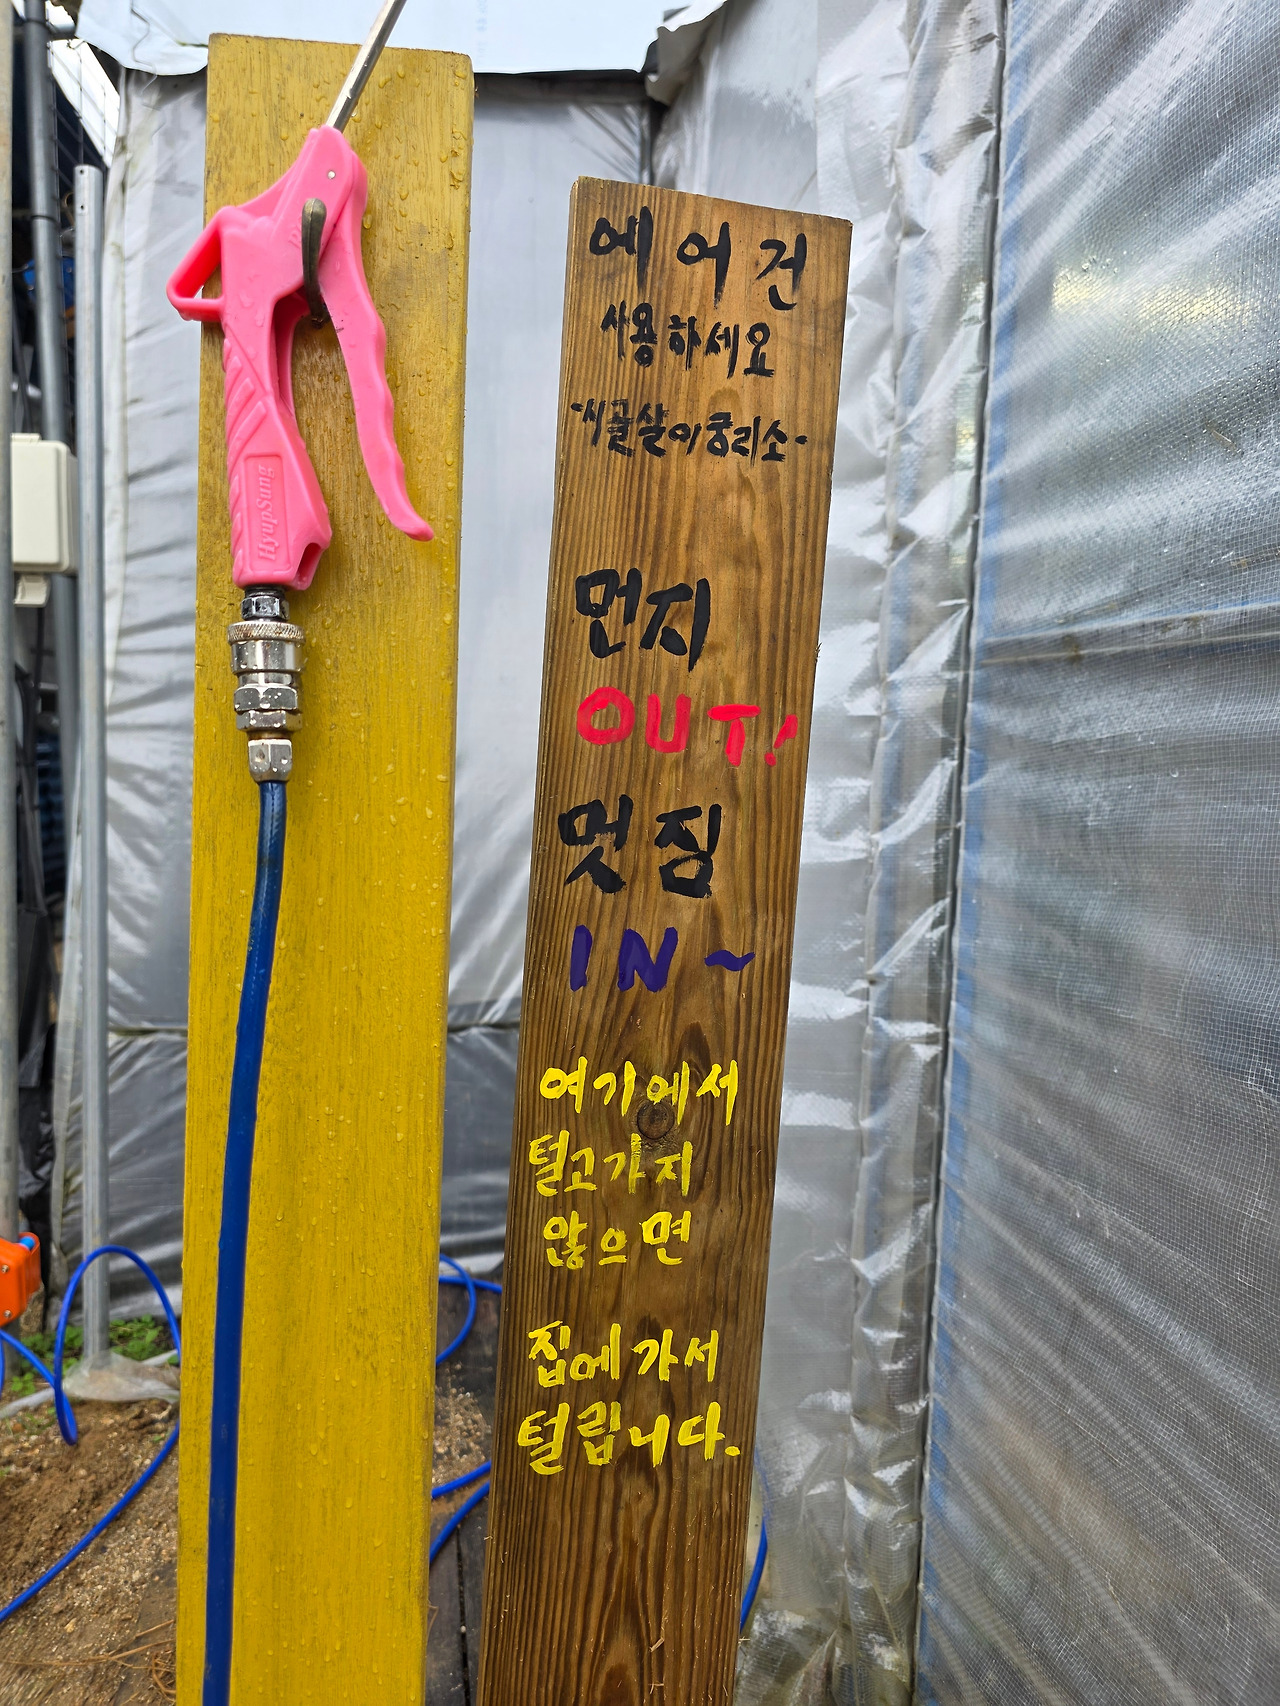 HyupSung
에어건
사용하세요
-시골살이궁리소-
먼지
OUT!
멋짐
IN~
여기에서
털고가지
않으면
집에가서
털립니다.